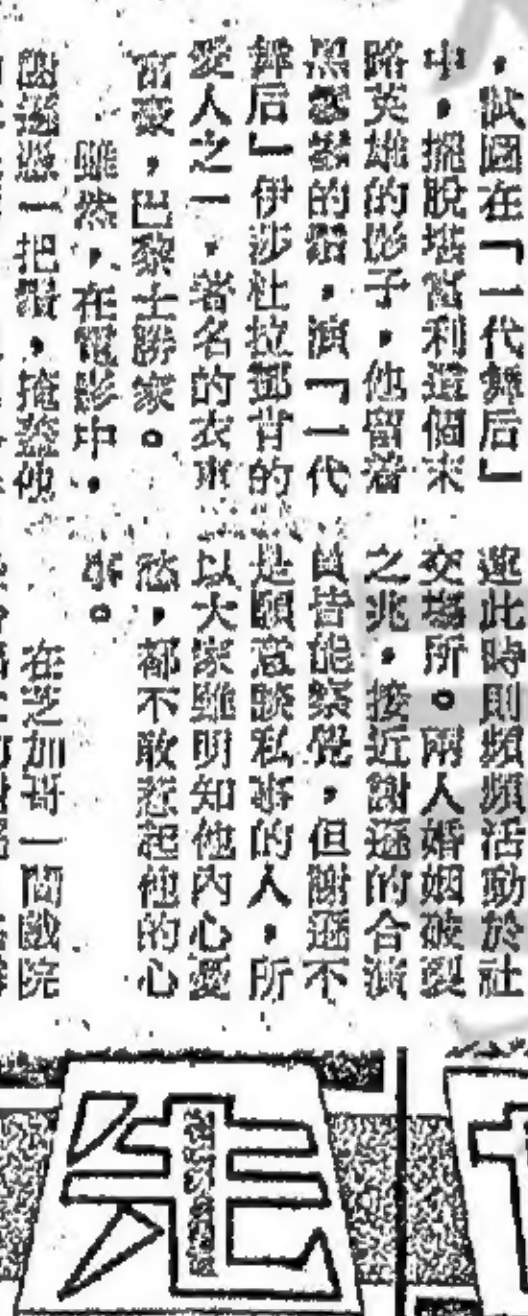 ，試圖在「一代舞后」
中，擺脫塔當利這個末
路英雄的影子，他留着
黑的鬍，演「一代
舞后」伊莎杜拉鄧肯的
愛人之一，著名的衣車
富豪，巴黎士勝家。
雖然，在電影中，
謝遜憑一把鬍，掩蓋他
遜此時則頻頻活動於社
交場所。兩人婚姻破裂
之兆，接近謝遜的合演
員皆能察覺，但謝遜不
是願意談私事的人，所
以大家雖明知他內心愛
愁，都不敢惹起他的心
事。
在芝加哥一間戲院
先